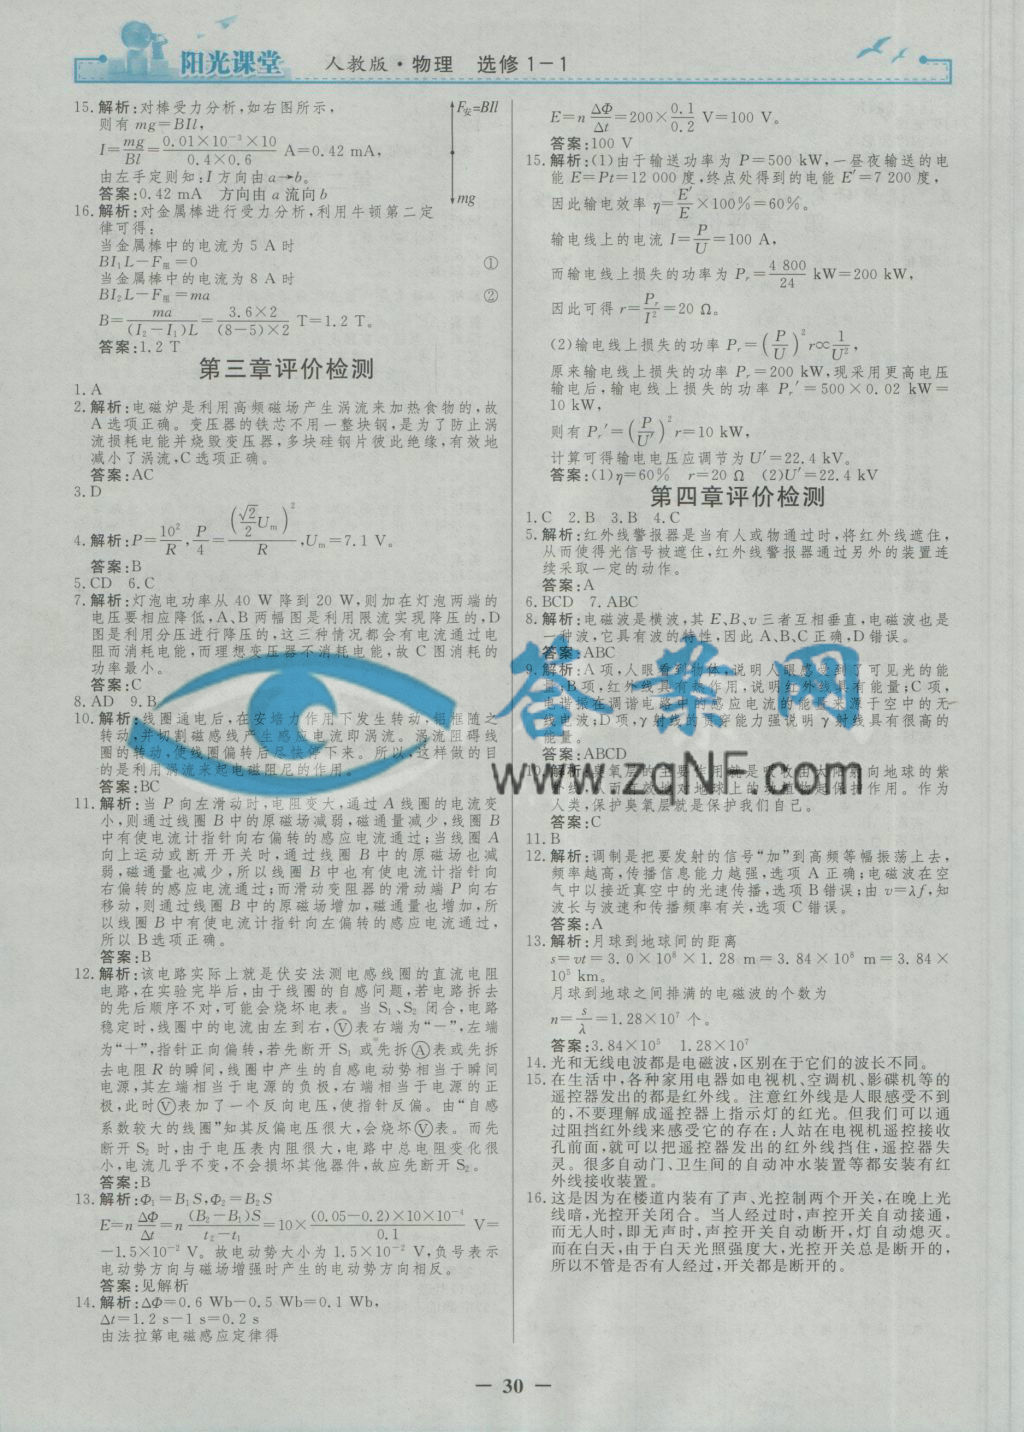 阳光课堂 人教版·物理 选修1-1
15.解析:对棒受力分析,如右图所示,
则有 mg=BIl,
I=mg/Bl=0.01×10⁻³×10/0.4×0.6 A=0.42 mA,
由左手定则知:I方向由a→b。
答案:0.42 mA 方向由a流向b
F安=BIl
mg
16.解析:对金属棒进行受力分析,利用牛顿第二定
律可得:
当金属棒中的电流为 5 A 时
BI₁L-F阻=0 ①
当金属棒中的电流为 8 A 时
BI₂L-F阻=ma ②
B=ma/(I₂-I₁)L=3.6×2/(8-5)×2 T=1.2 T。
答案:1.2 T
第三章评价检测
1.A
2.解析:电磁炉是利用高频磁场产生涡流来加热食物的,故
A选项正确。变压器的铁芯不用一整块钢,是为了防止涡
流损耗电能并烧毁变压器,多块硅钢片彼此绝缘,有效地
减小了涡流,C选项正确。
答案:AC
3.D
4.解析:P=10²/R,P/4=(√2/2 Um)²/R,Um=7.1 V。
答案:B
5.CD 6.C
7.解析:灯泡电功率从 40 W 降到 20 W,则加在灯泡两端的
电压要相应降低,A、B两幅图是利用限流实现降压的,D
图是利用分压进行降压的,这三种情况都会有电流通过电
阻而消耗电能,而理想变压器不消耗电能,故C图消耗的
功率最小。
答案:C
8.AD 9.B
10.解析:线圈通电后,在安培力作用下发生转动,铝框随之
转动,并切割磁感线产生感应电流即涡流。涡流阻碍线
圈的转动,使线圈偏转后尽快停下来。所以,这样做的目
的是利用涡流来起电磁阻尼的作用。
答案:BC
11.解析:当P向左滑动时,电阻变大,通过A线圈的电流变
小,则通过线圈B中的原磁场减弱,磁通量减少,线圈B
中有使电流计指针向右偏转的感应电流通过;当线圈A
向上运动或断开开关时,通过线圈B中的原磁场也减
弱,磁通量也减少,所以线圈B中也有使电流计指针向
右偏转的感应电流通过;而滑动变阻器的滑动端P向右
移动,则通过线圈B中的原磁场增加,磁通量也增加,所
以线圈B中有使电流计指针向左偏转的感应电流通过,
所以B选项正确。
答案:B
12.解析:该电路实际上就是伏安法测电感线圈的直流电阻
电路,在实验完毕后,由于线圈的自感问题,若电路拆去
的先后顺序不对,可能会烧坏电表。当S₁、S₂闭合,电路
稳定时,线圈中的电流由左到右,Ⓥ表右端为“-”,左端
为“+”,指针正向偏转,若先断开S₁或先拆Ⓐ表或先拆
去电阻R的瞬间,线圈中产生的自感电动势相当于瞬间
电源,其左端相当于电源的负极,右端相当于电源的正
极,此时Ⓥ表加了一个反向电压,使指针反偏。由“自感
系数较大的线圈”知其反偏电压很大,会烧坏Ⓥ表。而先
断开S₂时,由于电压表内阻很大,电路中总电阻变化很
小,电流几乎不变,不会损坏其他器件,故应先断开S₂。
答案:B
13.解析:Φ₁=B₁S,Φ₂=B₂S
E=nΔΦ/Δt=n(B₂-B₁)S/t₂-t₁=10×(0.05-0.2)×10×10⁻⁴/0.1 V=
-1.5×10⁻² V。故电动势大小为1.5×10⁻² V,负号表示
电动势方向与磁场增强时产生的电动势方向相反。
答案:见解析
14.解析:ΔΦ=0.6 Wb-0.5 Wb=0.1 Wb,
Δt=1.2 s-1 s=0.2 s
由法拉第电磁感应定律得
E=nΔΦ/Δt=200×0.1/0.2 V=100 V。
答案:100 V
15.解析:(1)由于输送功率为P=500 kW,一昼夜输送的电
能E=Pt=12 000度,终点处得到的电能E′=7 200度,
因此输电效率η=E′/E×100%=60%。
输电线上的电流I=P/U=100 A,
而输电线上损失的功率为Pr=4 800/24 kW=200 kW,
因此可得r=Pr/I²=20 Ω。
(2)输电线上损失的功率Pr=(P/U)²r∝1/U²,
原来输电线上损失的功率Pr=200 kW,现采用更高电压
输电后,输电线上损失的功率Pr′=500×0.02 kW=
10 kW,
则有Pr′=(P/U′)²r=10 kW,
计算可得输电电压应调节为U′=22.4 kV。
答案:(1)η=60% r=20 Ω (2)U′=22.4 kV
第四章评价检测
1.C 2.B 3.B 4.C
5.解析:红外线警报器是当有人或物通过时,将红外线遮住,
从而使得光信号被遮住,红外线警报器通过另外的装置连
续采取一定的动作。
答案:A
6.BCD 7.ABC
8.解析:电磁波是横波,其E、B、v三者互相垂直,电磁波也是
一种波,它具有波的特性,因此A、B、C正确,D错误。
答案:ABC
9.解析:A项,人眼看到物体,说明人眼感受到了可见光的能
量;B项,红外线具有热作用,说明红外线具有能量;C项,
电谐振在调谐电路中的感应电流的能量来源于空中的无
线电波;D项,γ射线的贯穿能力强说明γ射线具有很高的
能量。
答案:ABCD
10.解析:臭氧层的主要作用就是吸收由太阳射向地球的紫
外线,从而有效地对地球上的动植物起保护作用。作为
人类,保护臭氧层就是保护我们自己。
答案:C
11.B
12.解析:调制是把要发射的信号“加”到高频等幅振荡上去,
频率越高,传播信息能力越强,选项A正确;电磁波在空
气中以接近真空中的光速传播,选项B错误;由v=λf,知
波长与波速和传播频率有关,选项C错误。
答案:A
13.解析:月球到地球间的距离
s=vt=3.0×10⁸×1.28 m=3.84×10⁸ m=3.84×
10⁵ km。
月球到地球之间排满的电磁波的个数为
n=s/λ=1.28×10⁷个。
答案:3.84×10⁵ 1.28×10⁷
14.光和无线电波都是电磁波,区别在于它们的波长不同。
15.在生活中,各种家用电器如电视机、空调机、影碟机等的
遥控器发出的都是红外线。注意红外线是人眼感受不到
的,不要理解成遥控器上指示灯的红光。但我们可以通
过阻挡红外线来感受它的存在:人站在电视机遥控接收
孔前面,就可以把遥控器发出的红外线挡住,遥控器失
灵。很多自动门、卫生间的自动冲水装置等都安装有红
外线接收装置。
16.这是因为在楼道内装有了声、光控制两个开关,在晚上光
线暗,光控开关闭合。当人经过时,声控开关自动接通,
而无人时,即无声时,声控开关自动断开,灯自动熄灭。
而在白天,由于白天光照强度大,光控开关总是断开的,
所以不管是否有人经过,开关都是断开的。
答案网
www.zqNF.com
— 30 —